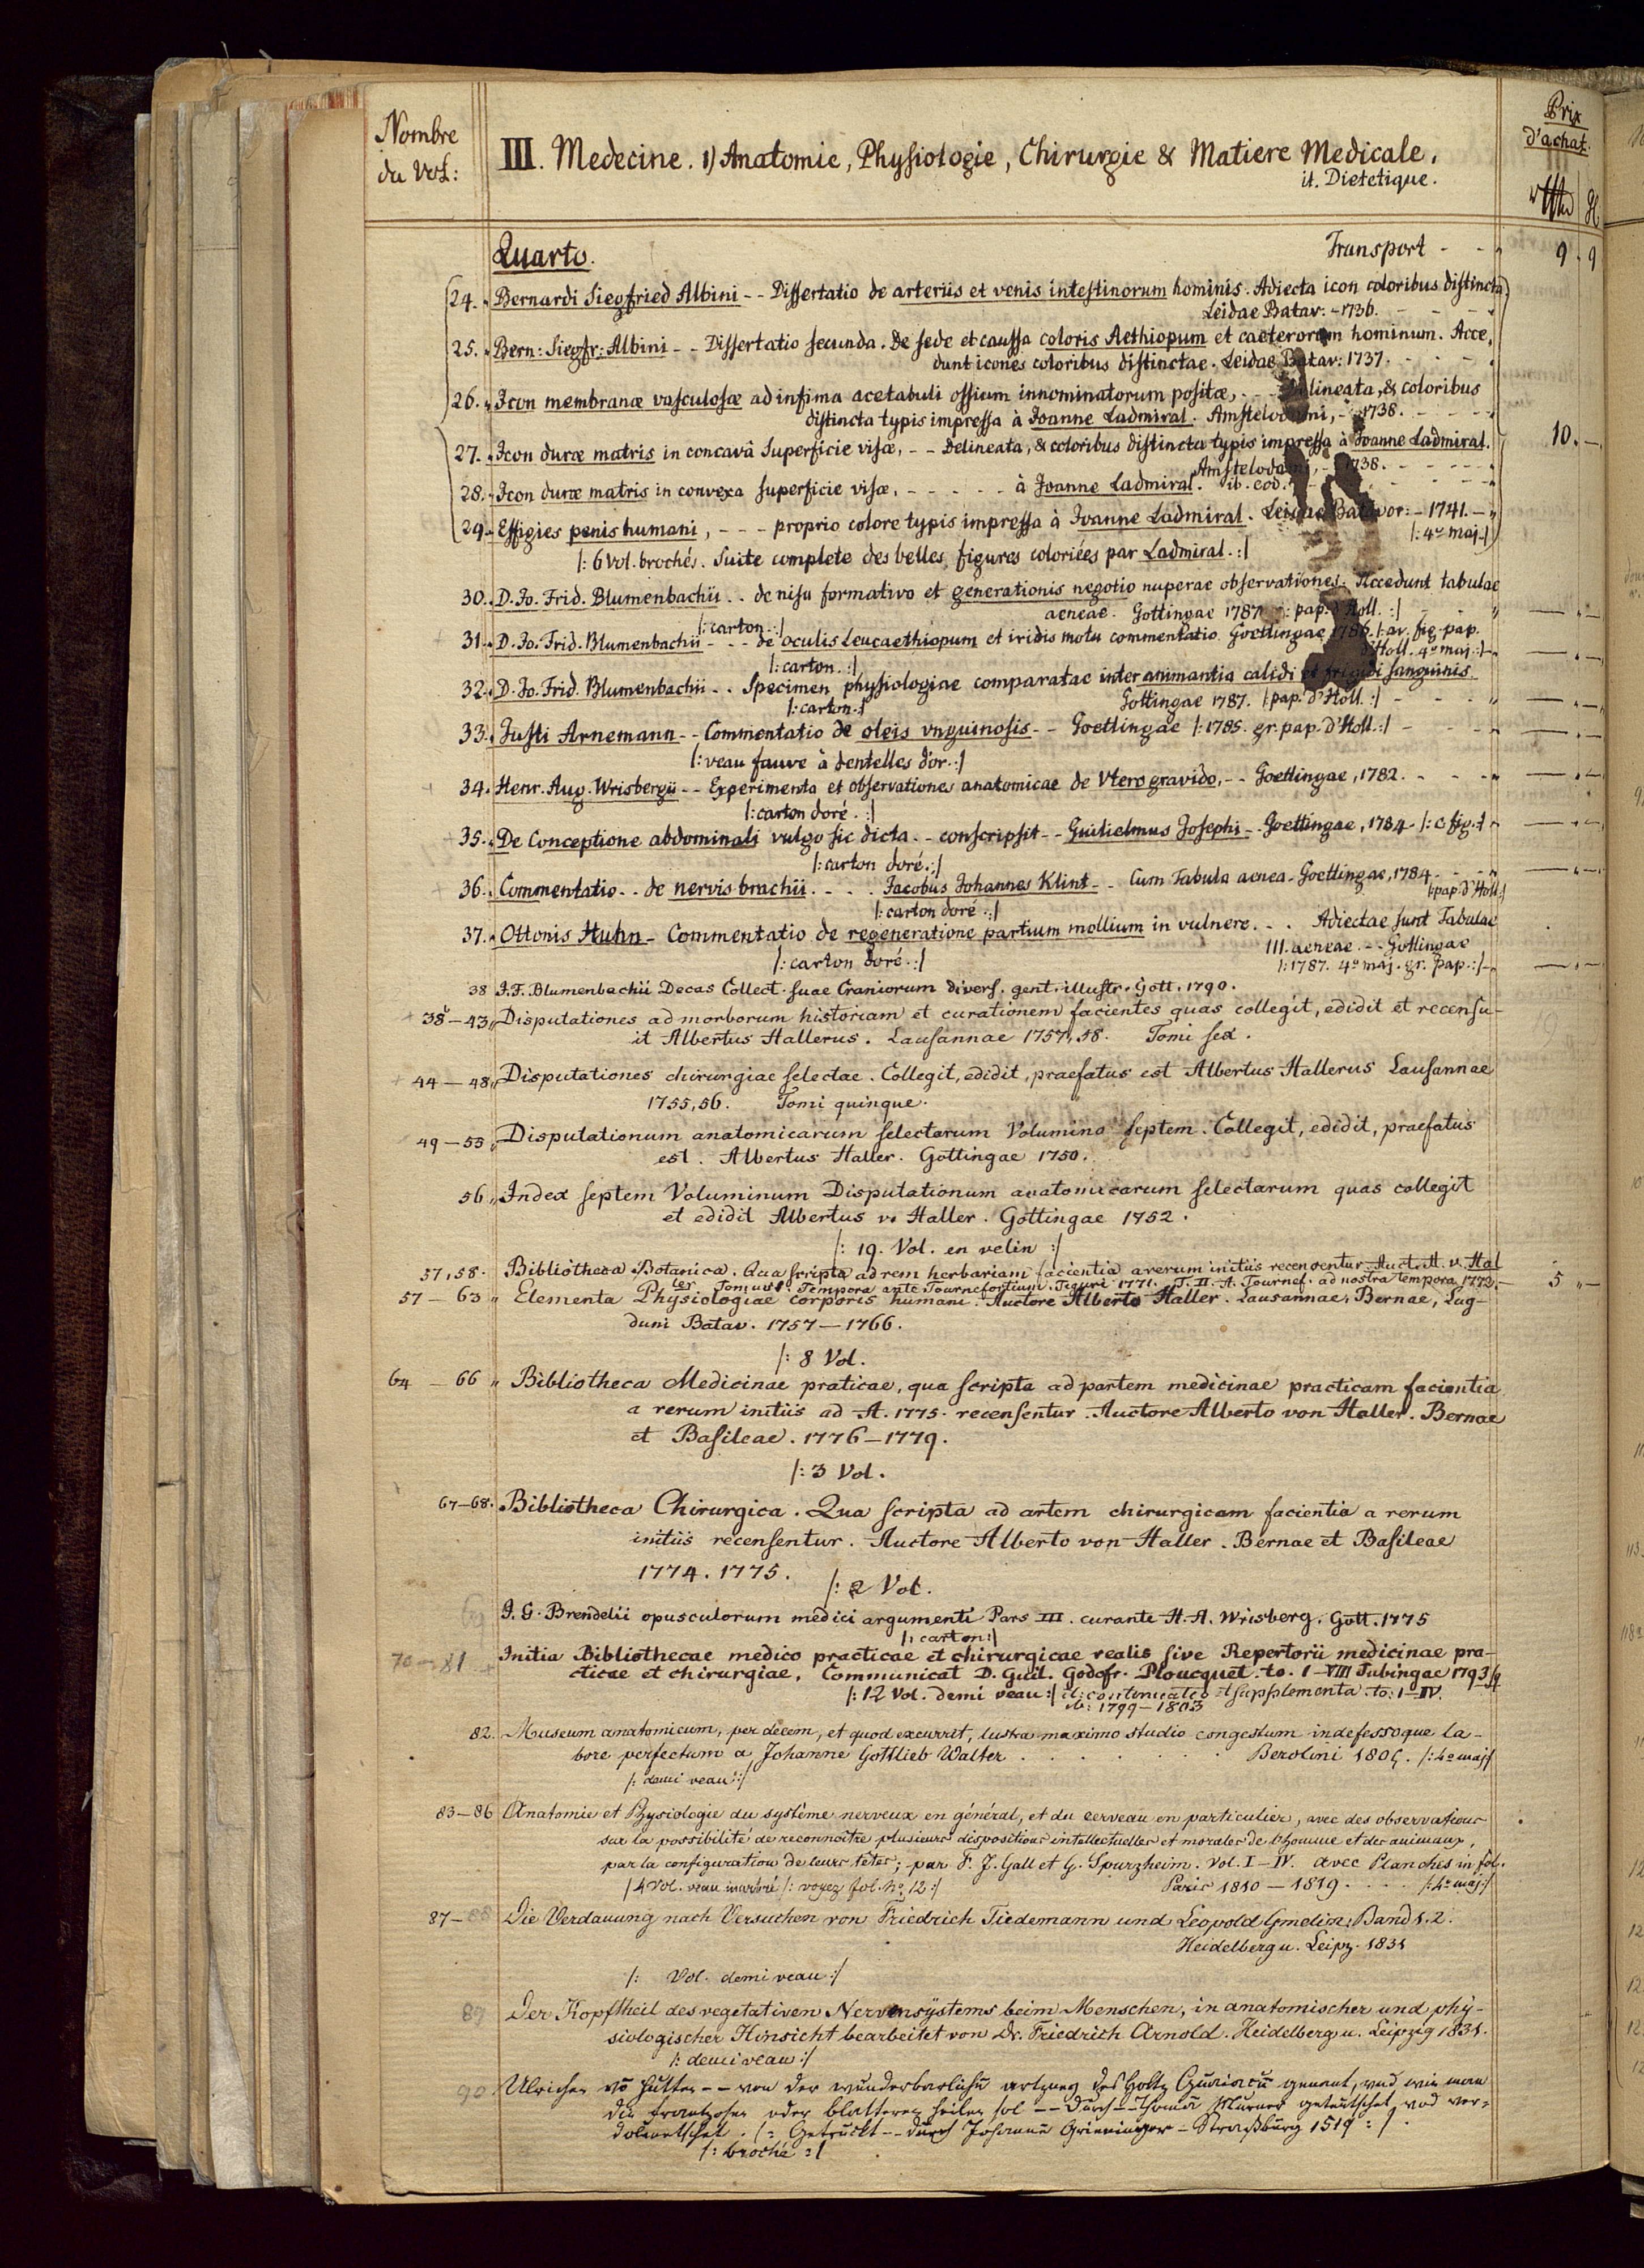 Nombre
du Vol:
III. Medecine. 1) Anatomie, Physiologie, Chirurgie & Matiere Medicale.
it. Dietetique.
Prix
d'achat.
Quarto. Transport - - " 9 . 9
24. " Bernardi Siegfried Albini - - Dissertatio de arteriis et venis intestinorum hominis. Adiecta icon coloribus distincta
Leidae Batav: - 1736. - - - "
25. " Bern: Siegfr: Albini - - Dissertatio secunda. De sede et caussa coloris Aethiopum et caeterorum hominum. Acce,
dunt icones coloribus distinctae. Leidae Batav: 1737. - - -
26. " Icon membranæ vasculosæ ad infima acetabuli ossium innominatorum positæ, - - Delineata, & coloribus
distincta typis impressa à Joanne Ladmiral. Amstelodami, - 1738. - - - - "
27. " Icon duræ matris in concavâ Superficie visæ, - - Delineata, & coloribus distincta typis impressa à Joanne Ladmiral. 10. —
Amstelodami, - 1738. - - - - "
28. " Icon duræ matris in convexa superficie visæ, - - - - - à Joanne Ladmiral. ib. eod. - - - - "
29. " Effigies penis humani, - - - proprio colore typis impressa à Joanne Ladmiral. Leidae Batavor: - 1741. - "
|: 4º maj :|
|: 6 Vol. brochés. Suite complete des belles figures coloriées par Ladmiral. :|
30. " D. Jo. Frid. Blumenbachii . . de nisu formativo et generationis negotio nuperae observationes. Accedunt tabulae
aeneae. Gottingae 1787 |: pap. d'Holl. :| - - - " — " —
|: carton. :|
31. " D. Jo. Frid. Blumenbachii - - - de oculis Leucaethiopum et iridis motu commentatio. Goettingae 1786. |: av. fig. pap.
d'Holl. 4º maj. :| - " — " —
|: carton. :|
32. " D. Jo. Frid. Blumenbachii . . Specimen physiologiae comparatae inter animantia calidi et frigidi sanguinis.
Gottingae 1787. |: pap. d'Holl. :| - - - " — " —
|: carton. :|
33. " Justi Arnemann - - Commentatio de oleis vnguinosis - - Goettingae |: 1785. gr. pap. d'Holl. :| - - - " — " —
|: veau fauve à dentelles d'or. :|
34. " Henr. Aug. Wrisbergii - - Experimenta et observationes anatomicae de Vtero gravido, - - Goettingae, 1782. - - - " — " —
|: carton doré. :|
35. " De Conceptione abdominali vulgo sic dicta. - - conscripsit - - Guilielmus Josephi - - Goettingae, 1784 - |: c. fig. :| " — " —
|: carton doré. :|
36. " Commentatio - - de nervis brachii. - - . Jacobus Johannes Klint - - Cum Tabula aenea - Goettingae, 1784. - - - " — " —
|: pap. d'Holl :|
|: carton doré. :|
37. " Ottonis Huhn - Commentatio de regeneratione partium mollium in vulnere. . . Adiectae sunt Tabulae
III. aeneae. - - Gottingae
|: carton doré. :| |: 1787. 4º maj. gr. pap. :| - " — " —
38 J. F. Blumenbachii Decas Collect. suae Craniorum divers. gent. illustr. Gott. 1790.
38 — 43 " Disputationes ad morborum historiam et curationem facientes quas collegit, edidit et recensu-
it Albertus Hallerus. Lausannae 1757, 58. Tomi sex.
44 — 48 " Disputationes chirurgiae selectae. Collegit, edidit, praefatus est Albertus Hallerus Lausannae
1755, 56. Tomi quinque.
49 — 55 " Disputationum anatomicarum selectarum Volumina septem. Collegit, edidit, praefatus
est. Albertus Haller. Gottingae 1750.
56 " Index septem Voluminum Disputationum anatomicarum selectarum quas collegit
et edidit Albertus v. Haller. Gottingae 1752.
|: 19. Vol. en velin :|
57, 58. Bibliotheca Botanica. Qua scripta ad rem herbariam facientia a rerum initiis recensentur. Auct. A. v. Hal
ler. Tomus I. Tempora ante Tournefortium. Tiguri 1771. T. II. A. Tournef. ad nostra tempora 1772. — 5 " —
57 — 63 " Elementa Physiologiae corporis humani. Auctore Alberto Haller. Lausannae, Bernae, Lug-
duni Batav. 1757 — 1766.
|: 8 Vol.
64 — 66 " Bibliotheca Medicinae praticae, qua scripta ad partem medicinae practicam facientia
a rerum initiis ad A. 1775. recensentur. Auctore Alberto von Haller. Bernae
et Basileae. 1776 — 1779.
|: 3 Vol.
67 — 68. Bibliotheca Chirurgica. Qua scripta ad artem chirurgicam facientia a rerum
initiis recensentur. Auctore Alberto von Haller. Bernae et Basileae
1774. 1775.
|: 2 Vol.
69 J. G. Brendelii opusculorum medici argumenti Pars III. curante H. A. Wrisberg. Gott. 1775
|: carton :|
70 — 81 Initia Bibliothecae medico practicae et chirurgicae realis sive Repertorii medicinae pra-
cticae et chirurgiae. Communicat D. Guil. Godofr. Ploucquet. to. I — VIII Tubingae 1793
|: 12 Vol. demi veau :| it: continuatio et supplementa to: I — IV.
ib: 1799 — 1803
82. Museum anatomicum, per decem, et quod excurrit, lustra maximo studio congestum indefessoque la-
bore perfectum a Johanne Gottlieb Walter . . . . . . Berolini 1805. |: 4º maj :|
|: demi veau :|
83 — 86 Anatomie et Physiologie du système nerveux en général, et du cerveau en particulier, avec des observations
sur la possibilité de reconnoître plusieurs dispositions intellectuelles et morales de l'homme et des animaux,
par la configuration de leurs têtes; par F. J. Gall et G. Spurzheim. Vol. I — IV. avec Planches in fol.
|4 Vol. veau marbré |: voyez fol. No. 12 :| Paris 1810 — 1819 . . . . |: 4º maj :|
87 — 88 Die Verdauung nach Versuchen von Friedrich Tiedemann und Leopold Gmelin. Band 1. 2.
Heidelberg u. Leipz. 1831
|: Vol. demi veau :|
89 Der Kopftheil des vegetativen Nervensystems beim Menschen, in anatomischer und phy-
siologischer Hinsicht bearbeitet von Dr. Friedrich Arnold. Heidelberg u. Leipzig 1831.
|: demi veau :|
90 Ulrichen vō Hutten - - von der wunderbarlichē artzney des Holtz Guaiacū genant, und wie man
die frantzosen oder blatteren heilen sol - - durch - - Thomā Murner geteutschet und ver-
dolmetschet. |: Getruckt - - durch Johannē Grieninger - Straßburg 1519 :|
|: broché :|